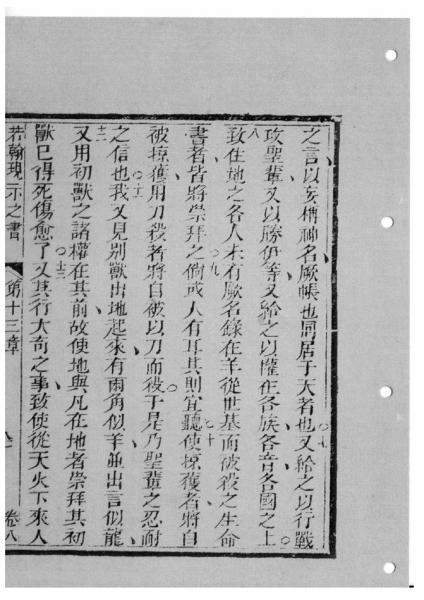 之言以妄稱神名厥帳也同居于天者也又給之以行戰
攻聖輩又以勝伊等又給之以權在各族各音各國之上
八
致住地之各人未有厥名錄在羊從世基而被殺之生命
書者皆將崇拜之倘或人有耳其則宜聽使掠獲者將自
被掠獲用刀殺者將自被以刀而殺于是乃聖輩之忍耐
之信也我又見別獸出地起來有兩角似羊並出言似龍
十二
又用初獸之諸權在其前故使地與凡在地者崇拜其初
獸已得死傷愈了又其行大奇之事致使從天火下來人
若翰現示之書
第十三章
卷八